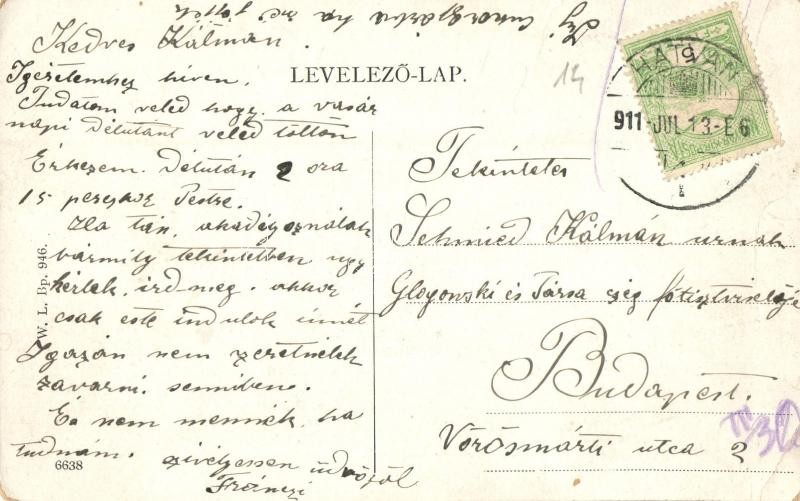 Kedves Kálmán.
Igéretemhez híven.
Tudatom veled hogy a vasár
napi délutánt veled töltöm
Érkezem. Délután 2 óra
15 perczkor Pestre.
Ha tán, akadályoználak
bármily tekintetben ugy
kérlek, ird meg. akkor
csak este indulok innét
Igazán nem szeretnélek
zavarni semmiben.
És nem mennék, ha
tudnám. szivélyessen üdvözöl
Ferenczi
ha
LEVELEZŐ-LAP.
14
HATVAN
911 JUL 13 - E 6
Tekintetes
Schmied Kálmán urnak
Glogowski és Társa czég főtisztviselője
Budapest.
Vörösmárti utca 2
W. L. Bp. 946.
6638